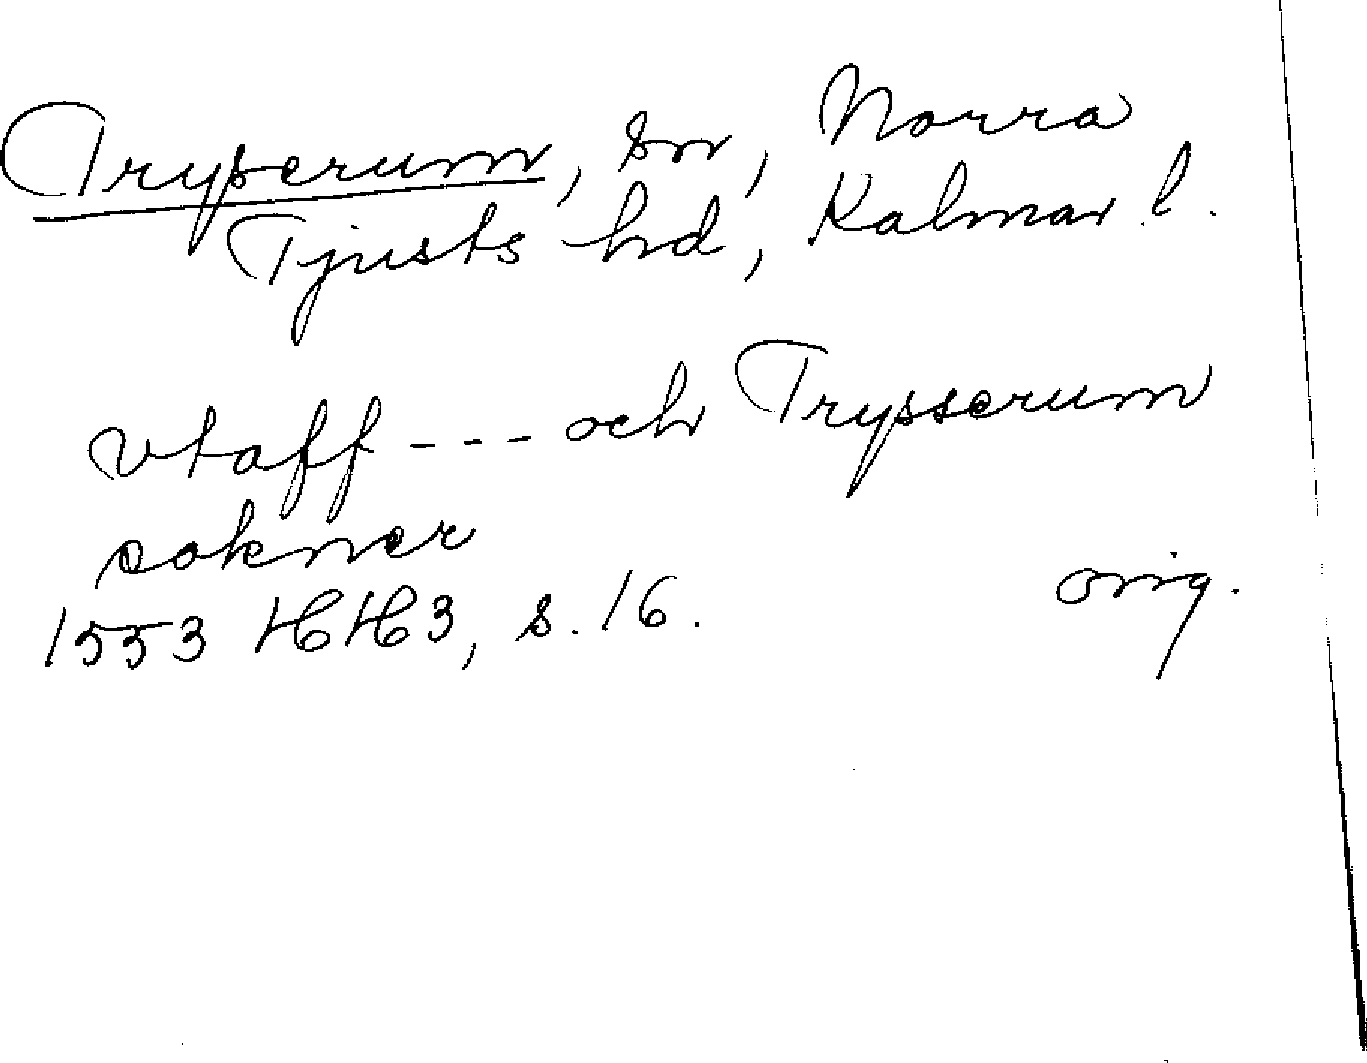 Tryserum, sn, Norra
Tjusts hd, Kalmar l.
vtaff --- och Trysserum
sokner
1553 HH3, s. 16. orig.